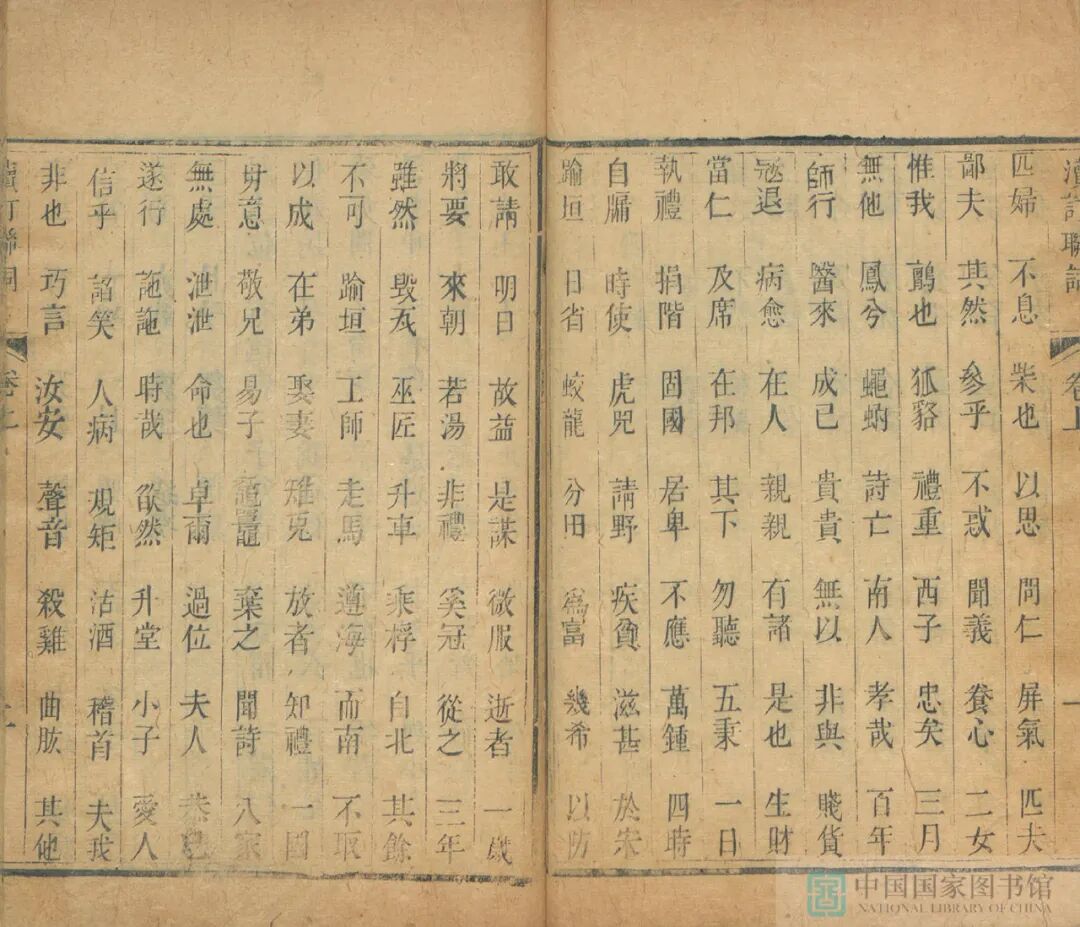 匹婦 不息 柴也 以思 問仁 屏氣 匹夫
鄙夫 其然 參乎 不惑 聞義 養心 二女
惟我 鸇也 狐貉 禮重 西子 忠矣 三月
無他 鳳兮 蠅蚋 詩亡 南人 孝哉 百年
師行 醫來 成己 貴貴 無以 非與 賤貨
冦退 病愈 在人 親親 有諸 是也 生財
當仁 及席 在邦 其下 勿聽 五秉 一日
執禮 捐階 固國 居卑 不應 萬鍾 四時
自牖 時使 虎兕 請野 疾貧 滋甚 於宋
踰垣 日省 蛟龍 分田 爲富 幾希 以防
敢請 明日 故益 是謀 微服 逝者 一歲
將要 來朝 若湯 非禮 奚冠 從之 三年
雖然 毁瓦 巫匠 升車 乘桴 自北 其餘
不可 踰垣 工師 走馬 遵海 而南 不取
以成 在弟 娶妻 雉兎 放者 知禮 一國
毋意 敬兄 易子 黿鼉 棄之 聞詩 八家
無處 泄泄 命也 卓爾 過位 夫人 恭己
遂行 訑訑 時哉 欲然 升堂 小子 愛人
信乎 諂笑 人病 規矩 沽酒 稽首 夫我
非也 巧言 汝安 聲音 殺雞 曲肱 其他
卷上
中国国家图书馆
NATIONAL LIBRARY OF CHINA